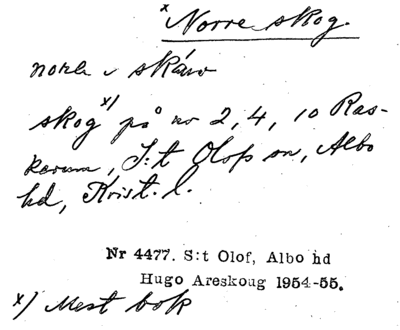 x Norre skog.
skog x) på no 2, 4, 10 Ras-
kerum, S:t Olofs sn, Albo
hd, Krist. l.
Nr 4477. S:t Olof, Albo hd
Hugo Areskoug 1954-55.
x) Mest bok